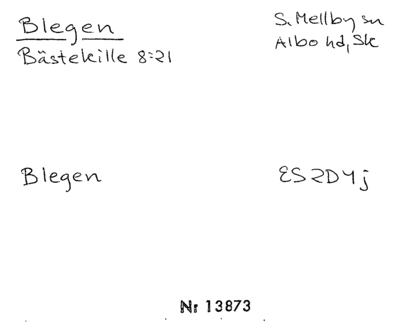 Blegen
Bästekille 8:21
S. Mellby sn
Albo hd, Sk
Blegen
ES 2D4j
Nr 13873